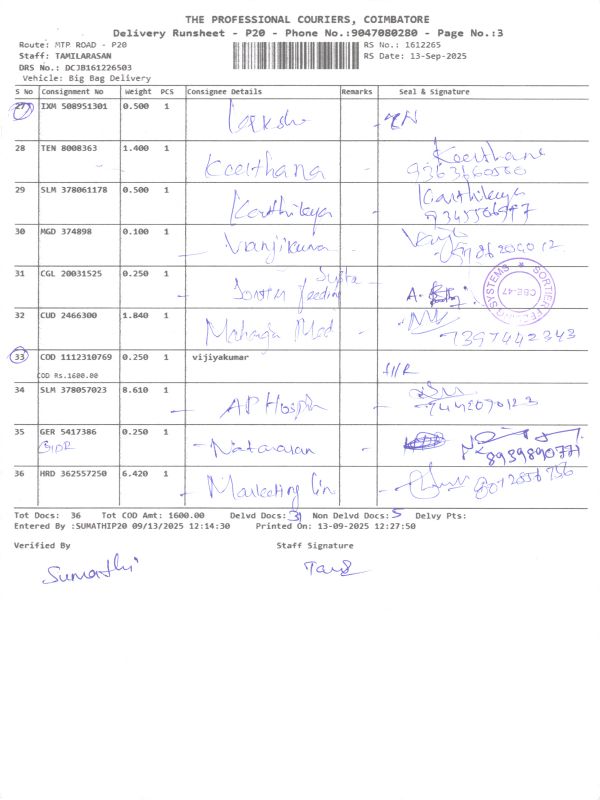 THE PROFESSIONAL COURIERS, COIMBATORE
Delivery Runsheet - P20 - Phone No.:9047080280 - Page No.:3
Route: MTP ROAD - P20
RS No.: 1612265
Staff: TAMILARASAN
RS Date: 13-Sep-2025
DRS No.: DCJB161226503
Vehicle: Big Bag Delivery
S No Consignment No Weight PCS Consignee Details Remarks Seal & Signature
27 IXM 508951301 0.500 1
28 TEN 8008363 1.400 1 Keerthana Keerthana
29 SLM 378061178 0.500 1 Karthikeya Karthikeya
30 MGD 374898 0.100 1 Vanjikumar
31 CGL 20031525 0.250 1
SYSTEMS ★ SORTIER
CBE-47
32 CUD 2466300 1.840 1 Med
7397442343
33 COD 1112310769 0.250 1 vijiyakumar
COD Rs.1600.00
34 SLM 378057023 8.610 1 AP Hospita
35 GER 5417386 0.250 1 Natarasan
8939890771
36 HRD 362557250 6.420 1 Marketing
Tot Docs: 36 Tot COD Amt: 1600.00 Delvd Docs: 31 Non Delvd Docs: 5 Delvy Pts:
Entered By :SUMATHIP20 09/13/2025 12:14:30 Printed On: 13-09-2025 12:27:50
Verified By Staff Signature
Sumathi